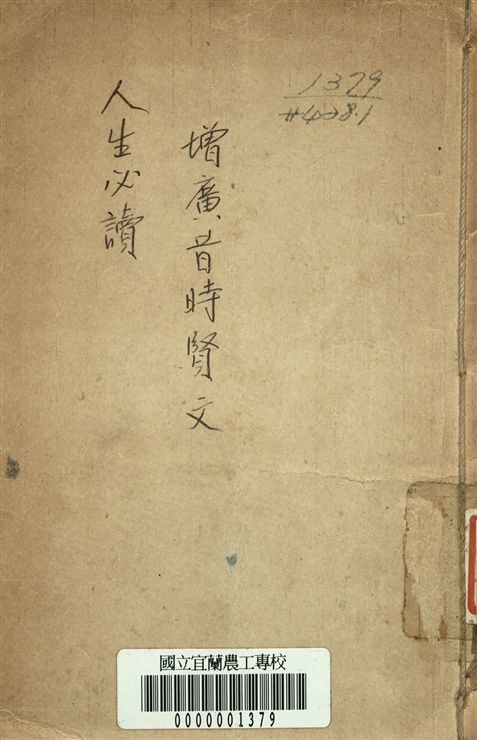 1379
#408.1
增廣昔時賢文
人生必讀
國立宜蘭農工專校
0000001379